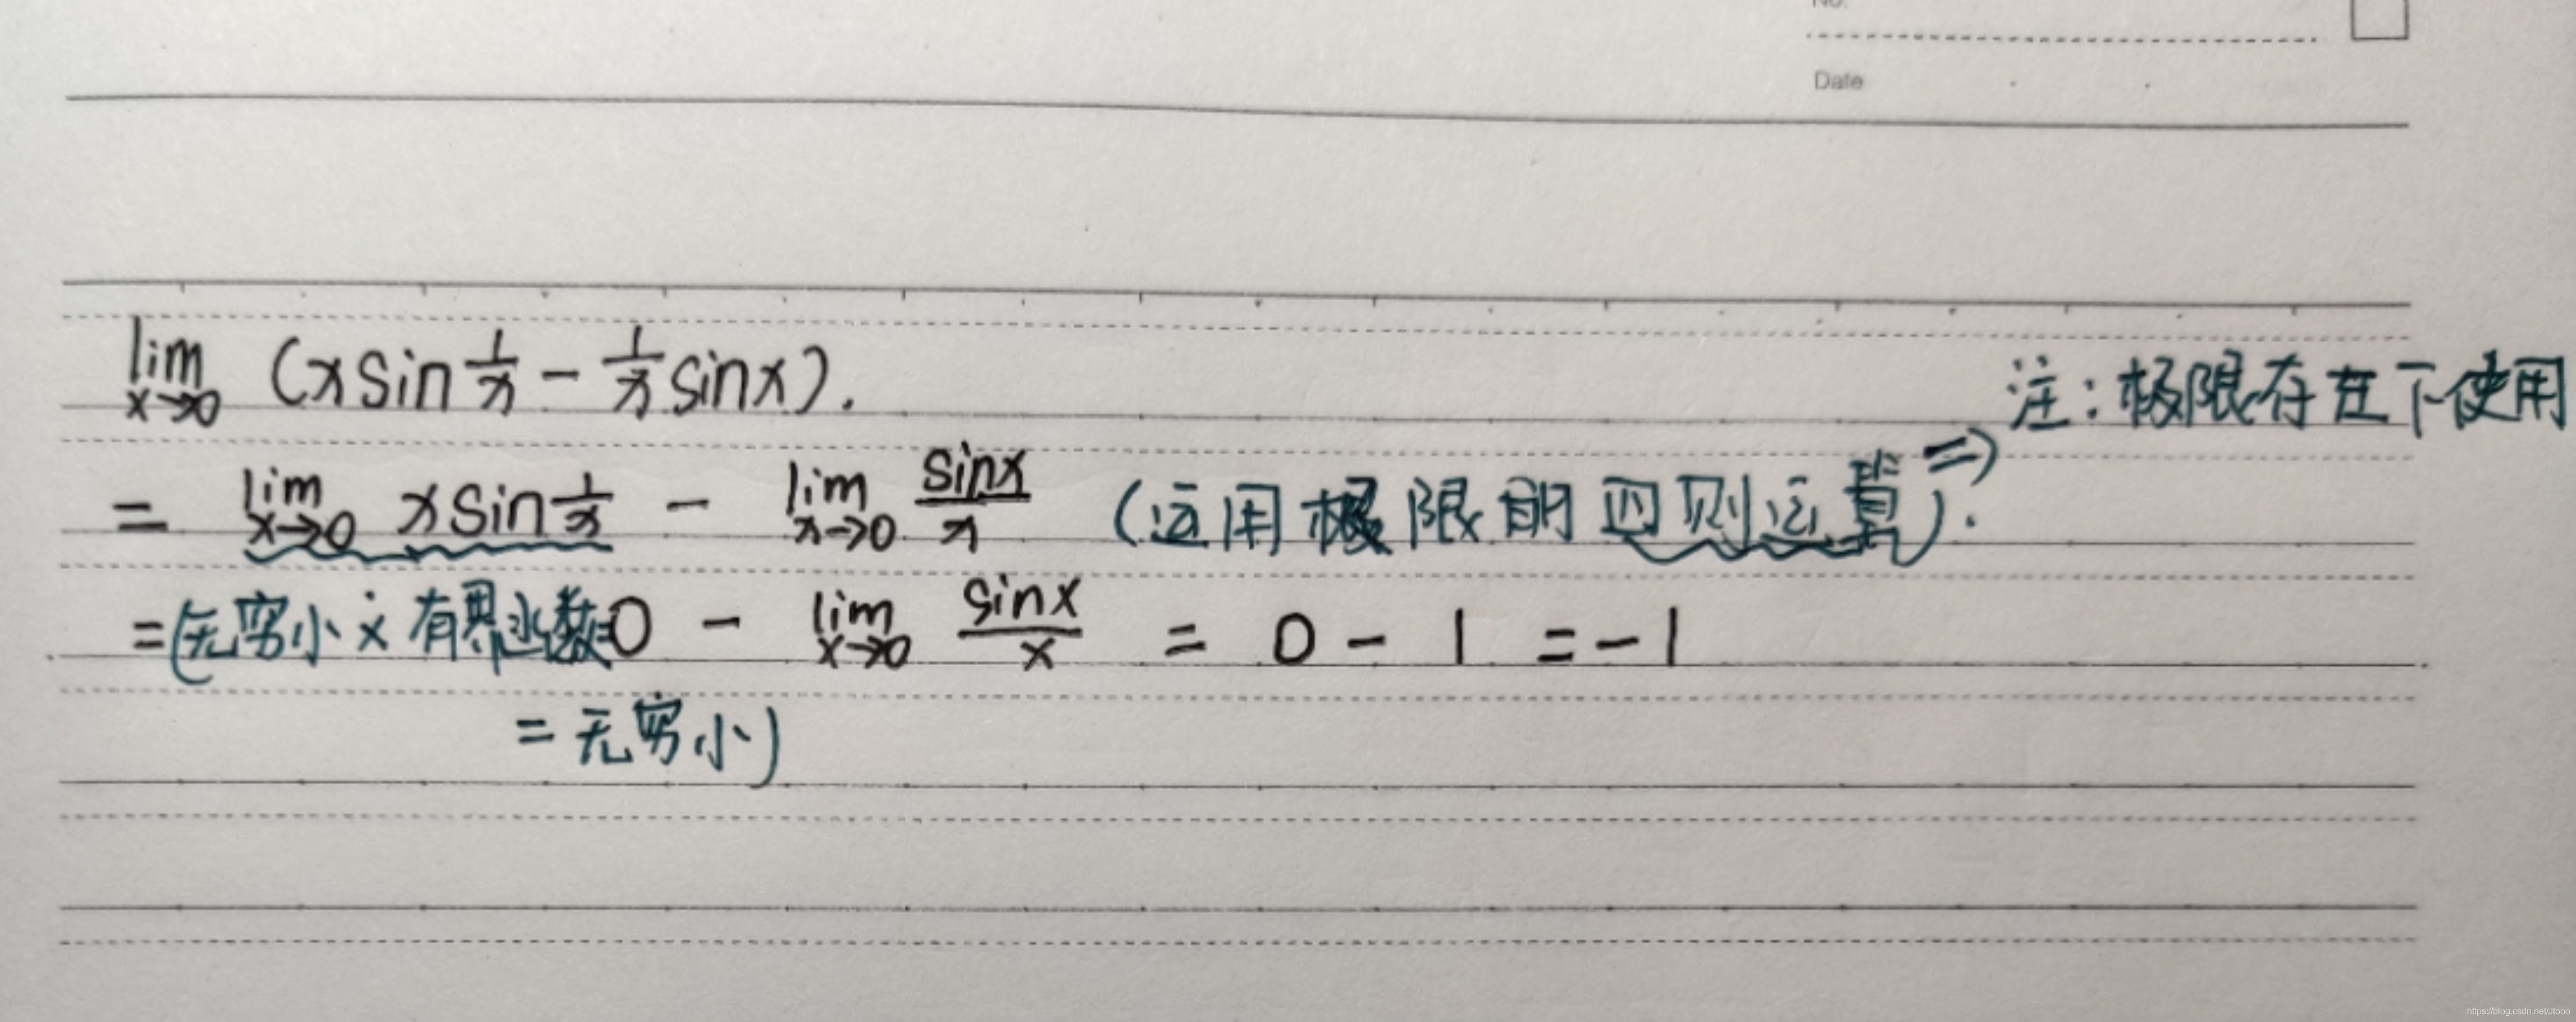 No.
Date
lim x→0 (x sin 1/x - 1/x sinx).
注:极限存在下使用
= lim x→0 x sin 1/x - lim x→0 sinx/x (运用极限的四则运算⇒).
=(无穷小×有界函数=0 - lim x→0 sinx/x = 0 - 1 = -1
=无穷小)
https://blog.csdn.net/Jtooo